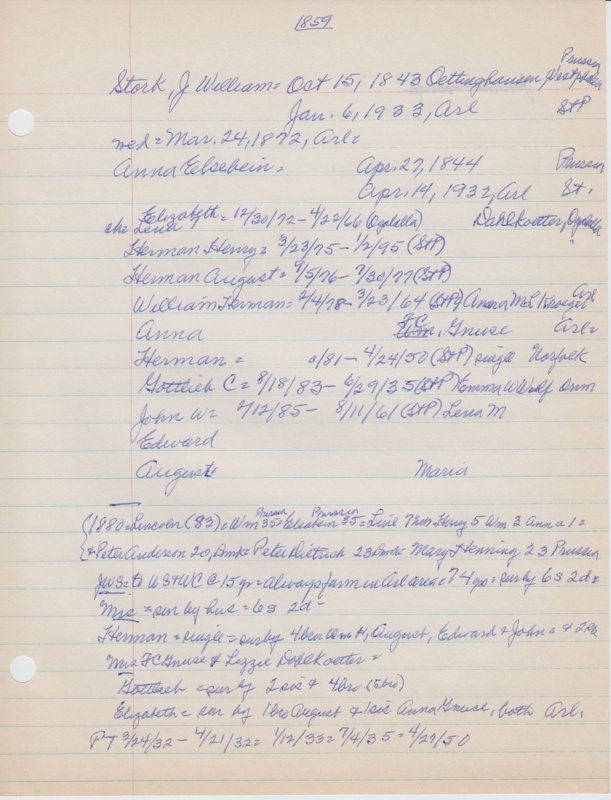 1859
Prussia
Stork, J William = Oct 15, 1843 Oettinghausen, Westphalia
Jan. 6, 1933, Arl StP
med = Mar. 24, 1872, Arl =
Anna Elsebein = Apr. 27, 1844 Prussia
Apr. 14, 1932, Arl St.
Elizabeth = 12/30/72 - 4/22/66 (Ogalalla) Dahlkoetter, Ogalalla
aka Lena
Herman Henry = 3/23/75 - 1/2/95 (StP)
Herman August = 9/5/76 - 7/30/77 (StP)
William Herman = 2/4/78 - 3/23/64 (StP) Anna ML Kroeger Arl
Anna FC Gnuse Arl =
Herman = /81 - 4/24/50 (StP) single Norfolk
Gottlieb C = 8/18/83 - 6/29/35 (StP) Emma W Wulf
John W = 2/12/85 - 8/11/61 (StP) Lena M
Edward
August Maria
1880 = Lincoln (83) = Wm 35 Prussia = Elsabein 35 Prussia = Line 7 Henry 5 Wm 2 Anna 1 =
+ Peter Anderson 20, Dmk = Peter Dietrich 23 Dmk = Mary Henning 23 Prussia
JWS = to W S + WC @ 15 yr = always farm in Arl area = 74 yrs = sur by 6s 2d =
Mrs = sur by hus = 6s 2d =
Herman = single = sur by 4 bro Wm H, August, Edward & John = & 2 sis
Mrs FC Gnuse & Lizzie Dahlkoetter =
Gottlieb = sur by 2 sis & 4 bro (5 bro)
Elizabeth = sur by 1 bro August & 1 sis Anna Gnuse, both Arl.
PT 3/24/32 - 4/21/32 = 1/12/33 = 7/4/35 = 4/27/50